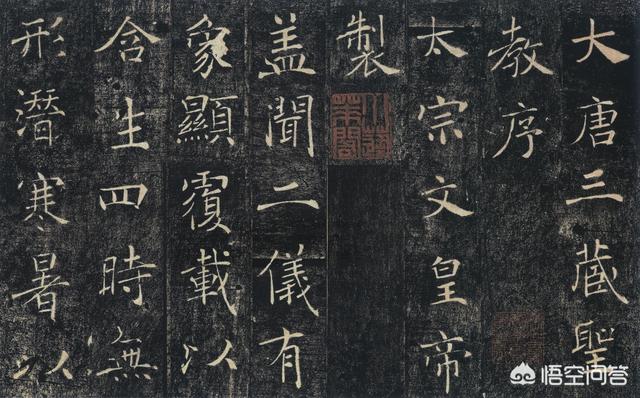 大唐三藏聖
教序
太宗文皇帝
製
小蓬萊閣
盖聞二儀有
象顯覆載以
含生四時無
形潛寒暑以
悟空问答